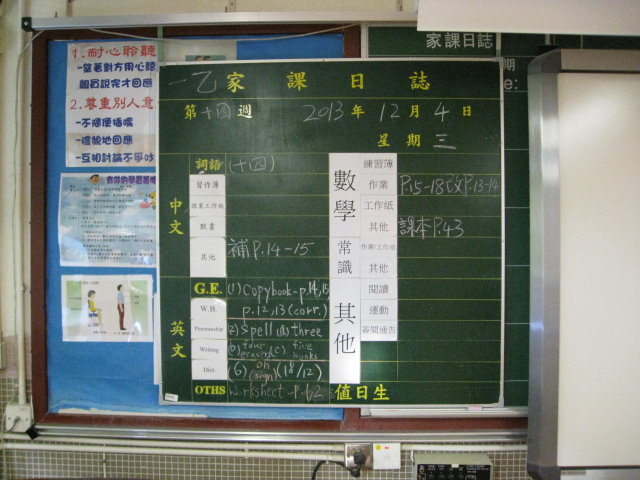 1. 耐心聆聽
-望著對方用心聽
組員說完才回應
2. 尊重別人意
-不隨便插嘴
-禮貌地回應
-互相討論不爭吵
家課日誌
期
e:
一乙家課日誌
第十四週 2013年12月4日
星期三
中文
詞語 (十四)
習作簿
課業工作紙
默書
其他 補P.14-15
英文
G.E. (1) Copybook-p.14,15
W.B. p.12,13(corr.)
Penmanship (2) Spell (a) three
Writing (b) four erasers (c) five books
Dict. (6) on (sign) (18/12)
OTHS worksheet-p.1,2
數學
練習簿
作業 P.15-18改P.13-14
工作紙
其他 課本P.43
常識
作業/工作紙
其他
其他
閱讀
運動
簽閱通告
值日生